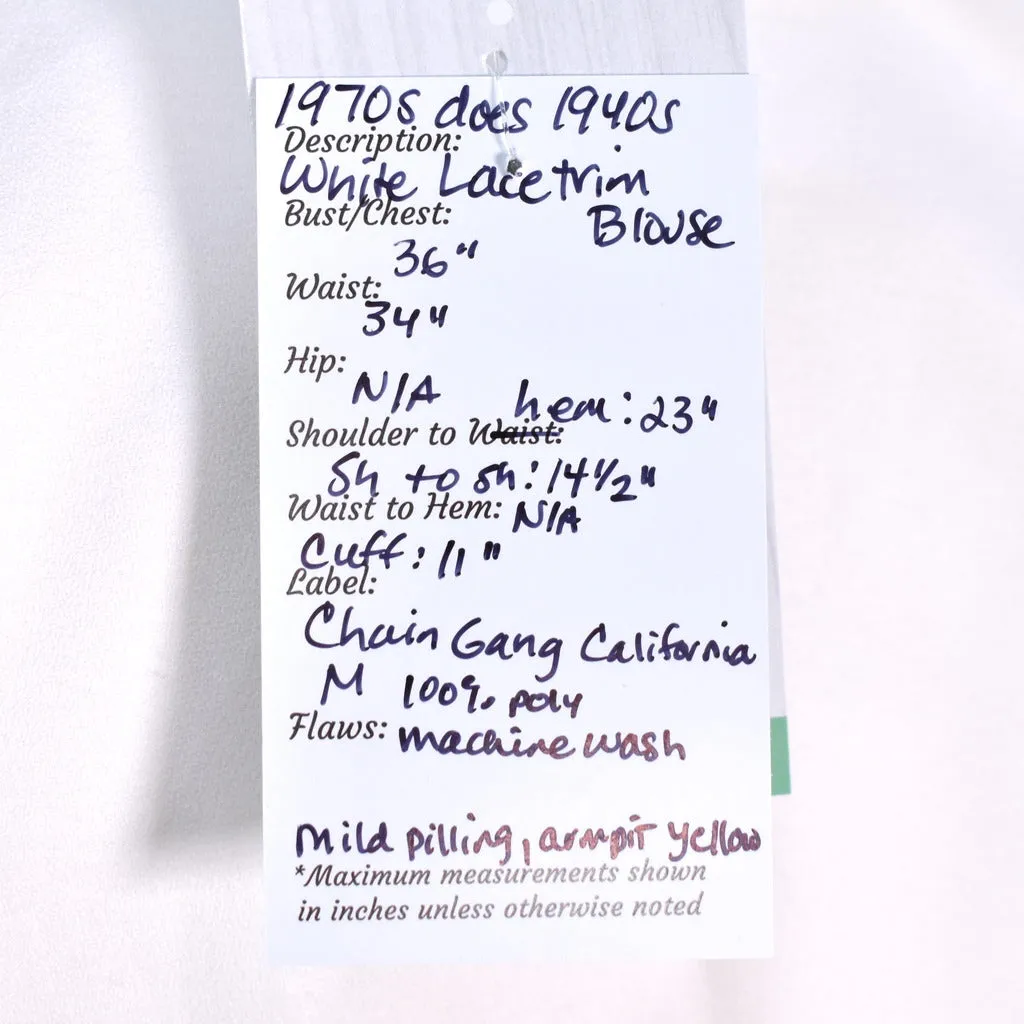 1970s does 1940s
Description:
White Lace trim
Bust/Chest:
Blouse
36"
Waist:
34"
Hip:
N/A hem: 23"
Shoulder to Waist:
Sh to sh: 14 1/2"
Waist to Hem: N/A
Cuff: 11"
Label:
Chain Gang California
M 100% poly
Flaws: machine wash
mild pilling, armpit yellow
*Maximum measurements shown
in inches unless otherwise noted